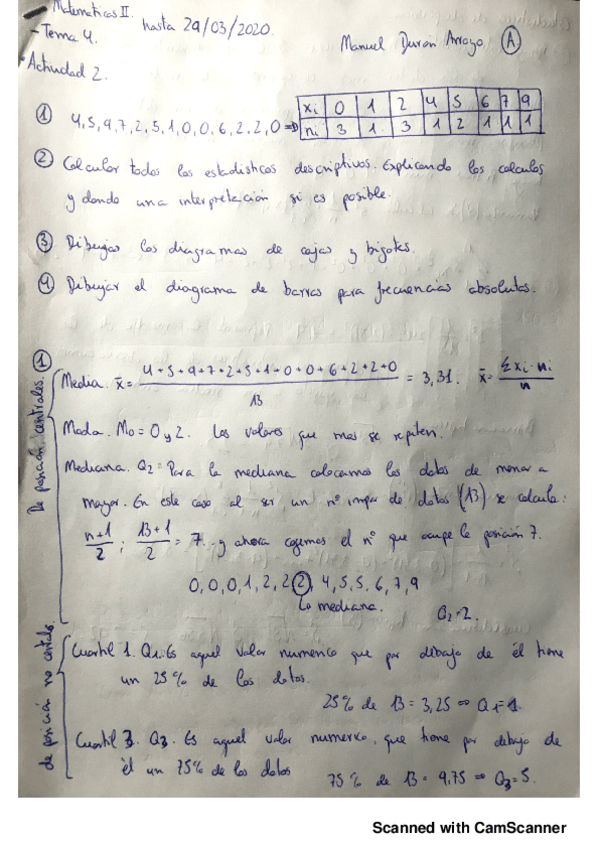 Matemáticas II.
hasta 29/03/2020.
- Tema 4.
Manuel Durán Arroyo (A)
• Actividad 2.
① 4,5,9,7,2,5,1,0,0,6,2,2,0 ⇒
xi 0 1 2 4 5 6 7 9
ni 3 1 3 1 2 1 1 1
② Calcular todos los estadísticos descriptivos. Explicando los cálculos
y dando una interpretación si es posible.
③ Dibujar los diagramas de cajas y bigotes.
④ Dibujar el diagrama de barras para frecuencias absolutas.
①
De posición centrales.
Media. x̄ = 4+5+9+7+2+5+1+0+0+6+2+2+0 / 13 = 3,31. x̄ = Σxi·ni / n
Moda. Mo = 0 y 2. Los valores que mas se repiten.
Mediana. Q2 = Para la mediana colocamos los datos de menor a
mayor. En este caso al ser un nº impar de datos (13) se calcula:
n+1 / 2 ; 13+1 / 2 = 7. y ahora cogemos el nº que ocupe la posición 7.
0,0,0,1,2,2,②,4,5,5,6,7,9
La mediana. Q2=2.
de posición no centrales
Cuartil 1. Q1. Es aquel valor numerico que por debajo de él tiene
un 25% de los datos.
25% de 13 = 3,25 ⇒ Q1=1
Cuartil 3. Q3. Es aquel valor numerico, que tiene por debajo de
él un 75% de los datos
75% de 13 = 9,75 ⇒ Q3=5.
Scanned with CamScanner